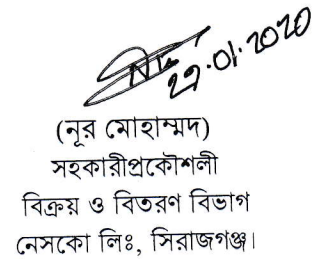 ২৭.০১.২০২০
(নূর মোহাম্মদ)
সহকারীপ্রকৌশলী
বিক্রয় ও বিতরণ বিভাগ
নেসকো লিঃ, সিরাজগঞ্জ।